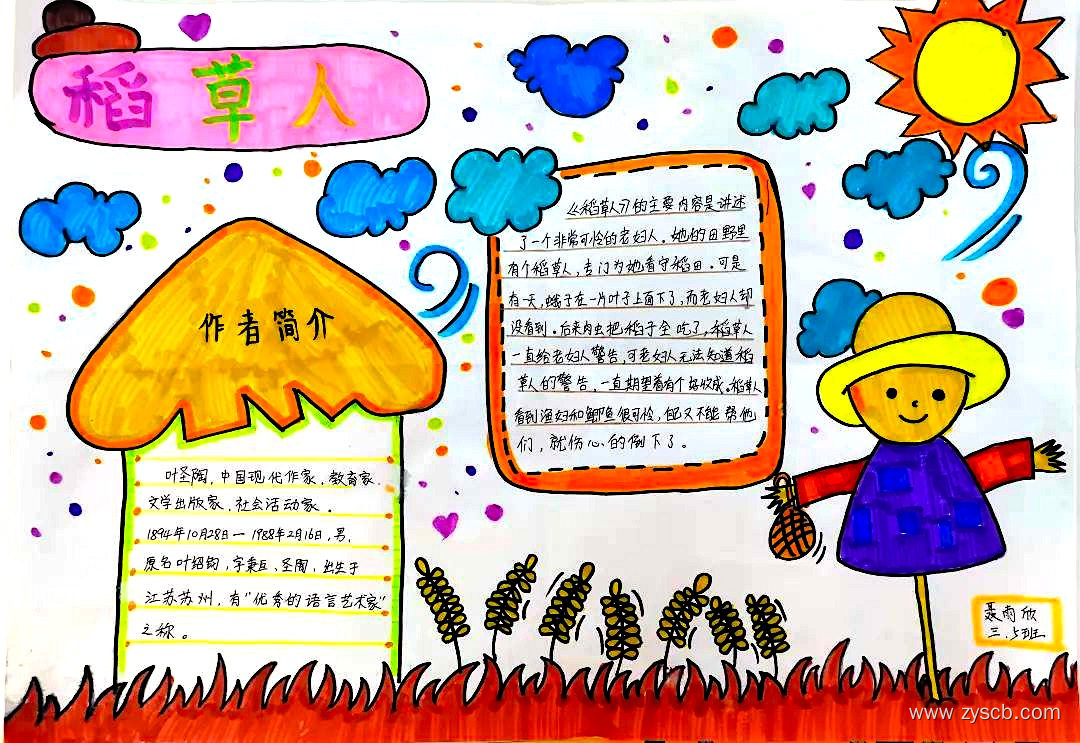 稻草人
作者简介
叶圣陶，中国现代作家、教育家、
文学出版家、社会活动家。
1894年10月28日一1988年2月16日，男，
原名叶绍钧，字秉臣、圣陶，出生于
江苏苏州，有"优秀的语言艺术家"
之称。
《稻草人》的主要内容是讲述
了一个非常可怜的老妇人。她的田野里
有个稻草人，专门为她看守稻田。可是
有一天，蛾子在一片叶子上面下了，而老妇人却
没看到。后来肉虫把稻子全吃了，稻草人
一直给老妇人警告，可老妇人无法知道稻
草人的警告，一直期望着有个好收成。稻草人
看到渔妇和鲫鱼很可怜，但又不能帮他
们，就伤心的倒下了。
聂雨欣
三.5班
www.zyscb.com